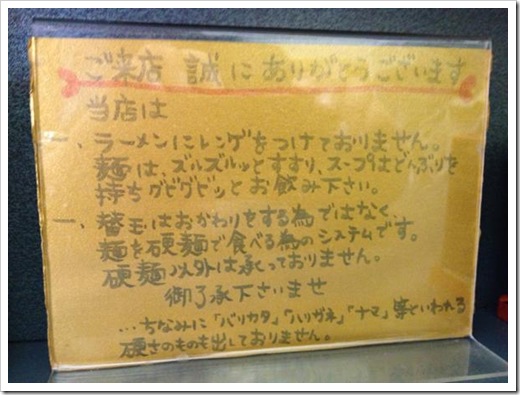 ご来店 誠にありがとうございます
当店は
一、ラーメンにレンゲをつけておりません。
麺は、ズルズルッとすすり、スープはどんぶりを
持ちグビグビッとお飲み下さい。
一、替玉はおかわりをする為ではなく、
麺を硬麺で食べる為のシステムです。
硬麺以外は承っておりません。
御了承下さいませ
…ちなみに「バリカタ」「ハリガネ」「ナマ」等といわれる
硬さのものも出しておりません。